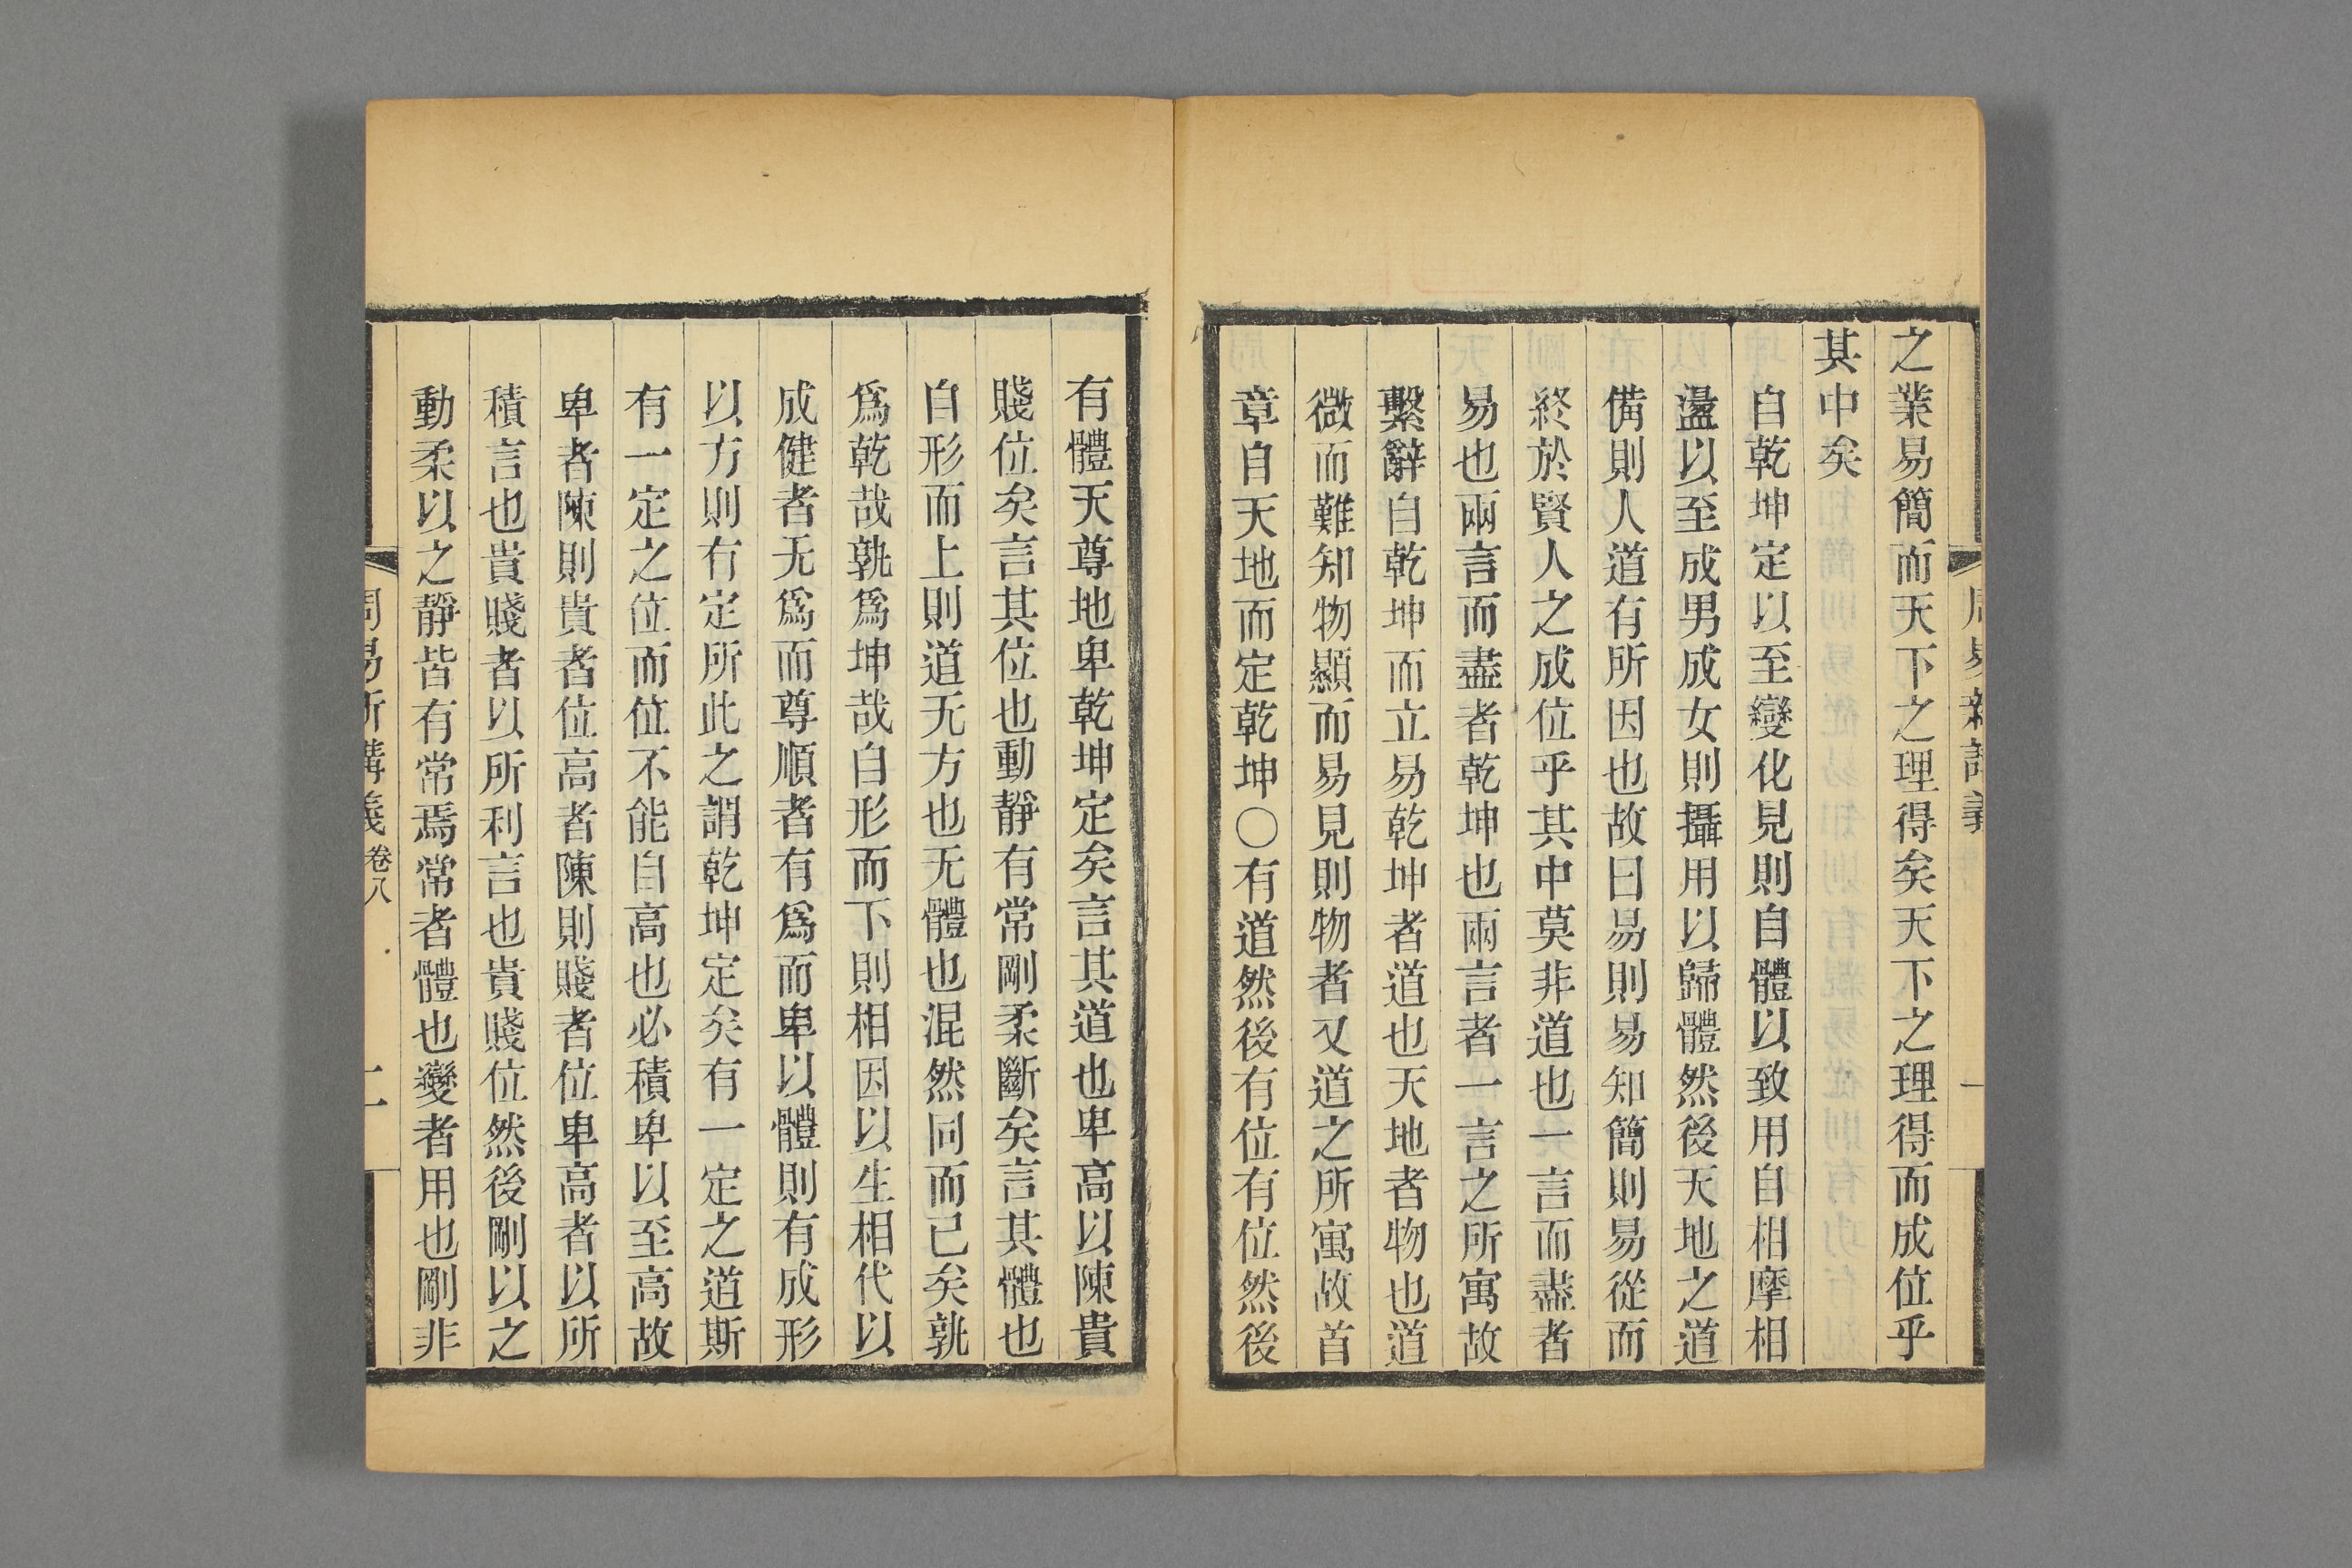 之業易簡而天下之理得矣天下之理得而成位乎
其中矣
自乾坤定以至變化見則自體以致用自相摩相
盪以至成男成女則攝用以歸體然後天地之道
備則人道有所因也故曰易則易知簡則易從而
終於賢人之成位乎其中莫非道也一言而盡者
易也兩言而盡者乾坤也兩言者一言之所寓故
繫辭自乾坤而立易乾坤者道也天地者物也道
微而難知物顯而易見則物者又道之所寓故首
章自天地而定乾坤○有道然後有位有位然後
有體天尊地卑乾坤定矣言其道也卑高以陳貴
賤位矣言其位也動靜有常剛柔斷矣言其體也
自形而上則道无方也无體也混然同而已矣孰
爲乾哉孰爲坤哉自形而下則相因以生相代以
成健者无爲而尊順者有爲而卑以體則有成形
以方則有定所此之謂乾坤定矣有一定之道斯
有一定之位而位不能自高也必積卑以至高故
卑者陳則貴者位高者陳則賤者位卑高者以所
積言也貴賤者以所利言也貴賤位然後剛以之
動柔以之靜皆有常焉常者體也變者用也剛非
周易新講義 卷八 二